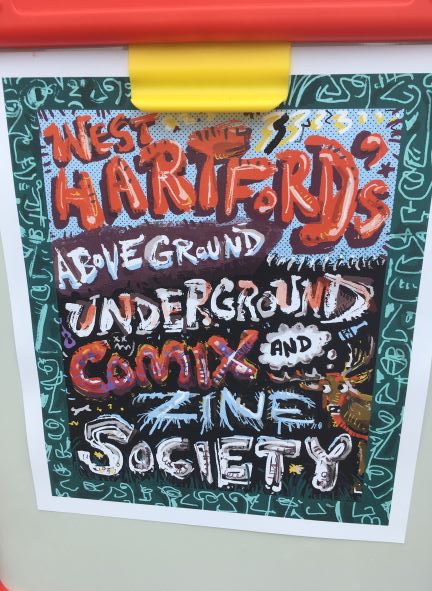 WEST
HARTFORD'S
ABOVEGROUND
UNDERGROUND
COMIX AND
ZINE
SOCIETY